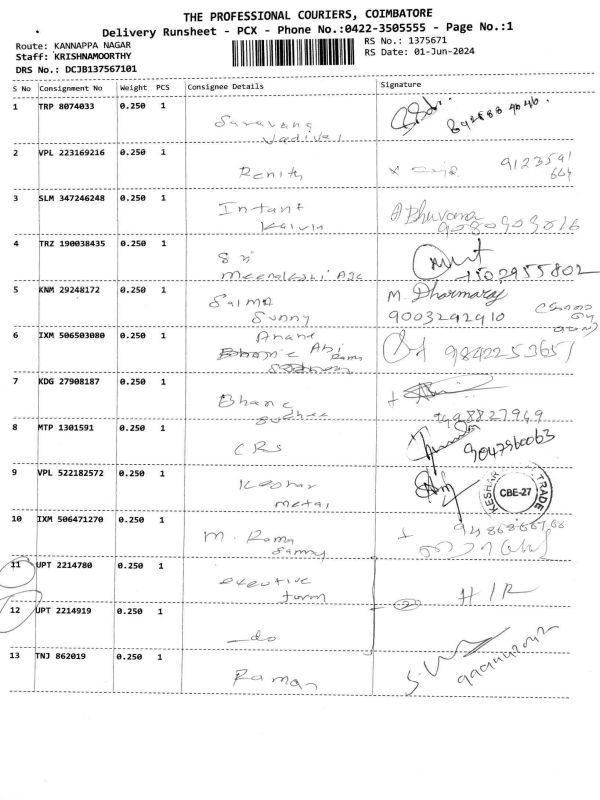 THE PROFESSIONAL COURIERS, COIMBATORE
Delivery Runsheet - PCX - Phone No.:0422-3505555 - Page No.:1
Route: KANNAPPA NAGAR
RS No.: 1375671
Staff: KRISHNAMOORTHY
RS Date: 01-Jun-2024
DRS No.: DCJB137567101
S No Consignment No Weight PCS Consignee Details Signature
1 TRP 8074033 0.250 1 Saravana
Vadivel
2 VPL 223169216 0.250 1 Renith 9123591
664
3 SLM 347246248 0.250 1 Intant A Bhuvana
Kalvin 9080903016
4 TRZ 190038435 0.250 1 Sri
Meenakshi Age 7502955802
5 KNM 29248172 0.250 1 Salma M. Dharmaraj
Sunny 9003292910
6 IXM 506503080 0.250 1 Anand
Abi Rama 9842253657
7 KDG 27908187 0.250 1 Bhanc
8827949
8 MTP 1301591 0.250 1 CRS 9047960063
9 VPL 522182572 0.250 1 Keshar
Metal
KESHAR TRADE
CBE-27
10 IXM 506471270 0.250 1 M. Rama
Sammy
11 UPT 2214780 0.250 1 executive
form H/R
12 UPT 2214919 0.250 1 do 2
13 TNJ 862019 0.250 1 Raman